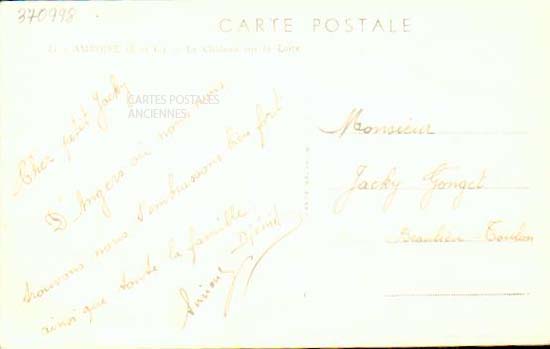 370998
CARTE POSTALE
AMBOISE (I.-et-L.) - Le Château sur la Loire
CARTES POSTALES
ANCIENNES
Cher petit Jacky
D'Angers où nous nous
trouvons nous t'embrassons bien fort
ainsi que toute la famille
Monsieur
Jacky Gonget
Beaulieu - Toulon